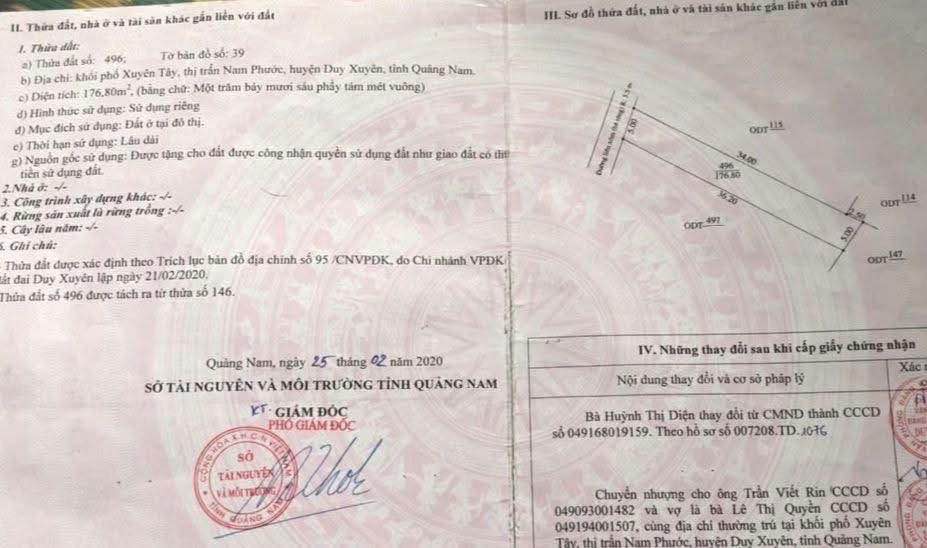 II. Thửa đất, nhà ở và tài sản khác gắn liền với đất
1. Thửa đất:
a) Thửa đất số: 496; Tờ bản đồ số: 39
b) Địa chỉ: khối phố Xuyên Tây, thị trấn Nam Phước, huyện Duy Xuyên, tỉnh Quảng Nam.
c) Diện tích: 176,80m², (bằng chữ: Một trăm bảy mươi sáu phẩy tám mét vuông)
d) Hình thức sử dụng: Sử dụng riêng
đ) Mục đích sử dụng: Đất ở tại đô thị.
e) Thời hạn sử dụng: Lâu dài
g) Nguồn gốc sử dụng: Được tặng cho đất được công nhận quyền sử dụng đất như giao đất có thu
tiền sử dụng đất.
2.Nhà ở: -/-
3. Công trình xây dựng khác: -/-
4. Rừng sản xuất là rừng trồng :-/-
5. Cây lâu năm: -/-
6. Ghi chú:
Thửa đất được xác định theo Trích lục bản đồ địa chính số 95 /CNVPĐK, do Chi nhánh VPĐK
đất đai Duy Xuyên lập ngày 21/02/2020.
Thửa đất số 496 được tách ra từ thửa số 146.
Quảng Nam, ngày 25 tháng 02 năm 2020
SỞ TÀI NGUYÊN VÀ MÔI TRƯỜNG TỈNH QUẢNG NAM
KT. GIÁM ĐỐC
PHÓ GIÁM ĐỐC
CỘNG HÒA X.H.C.N VIỆT NAM
SỞ
TÀI NGUYÊN
VÀ MÔI TRƯỜNG
TỈNH QUẢNG NAM
III. Sơ đồ thửa đất, nhà ở và tài sản khác gắn liền với đất
5.00
ODT 115
34.00
496
176.80
36.20
ODT 497
2.50
ODT 114
5.00
ODT 147
IV. Những thay đổi sau khi cấp giấy chứng nhận
Nội dung thay đổi và cơ sở pháp lý
Xác
Bà Huỳnh Thị Diện thay đổi từ CMND thành CCCD
số 049168019159. Theo hồ sơ số 007208.TD.1076
Chuyển nhượng cho ông Trần Viết Rin CCCD số
049093001482 và vợ là bà Lê Thị Quyền CCCD số
049194001507, cùng địa chỉ thường trú tại khối phố Xuyên
Tây, thị trấn Nam Phước, huyện Duy Xuyên, tỉnh Quảng Nam.